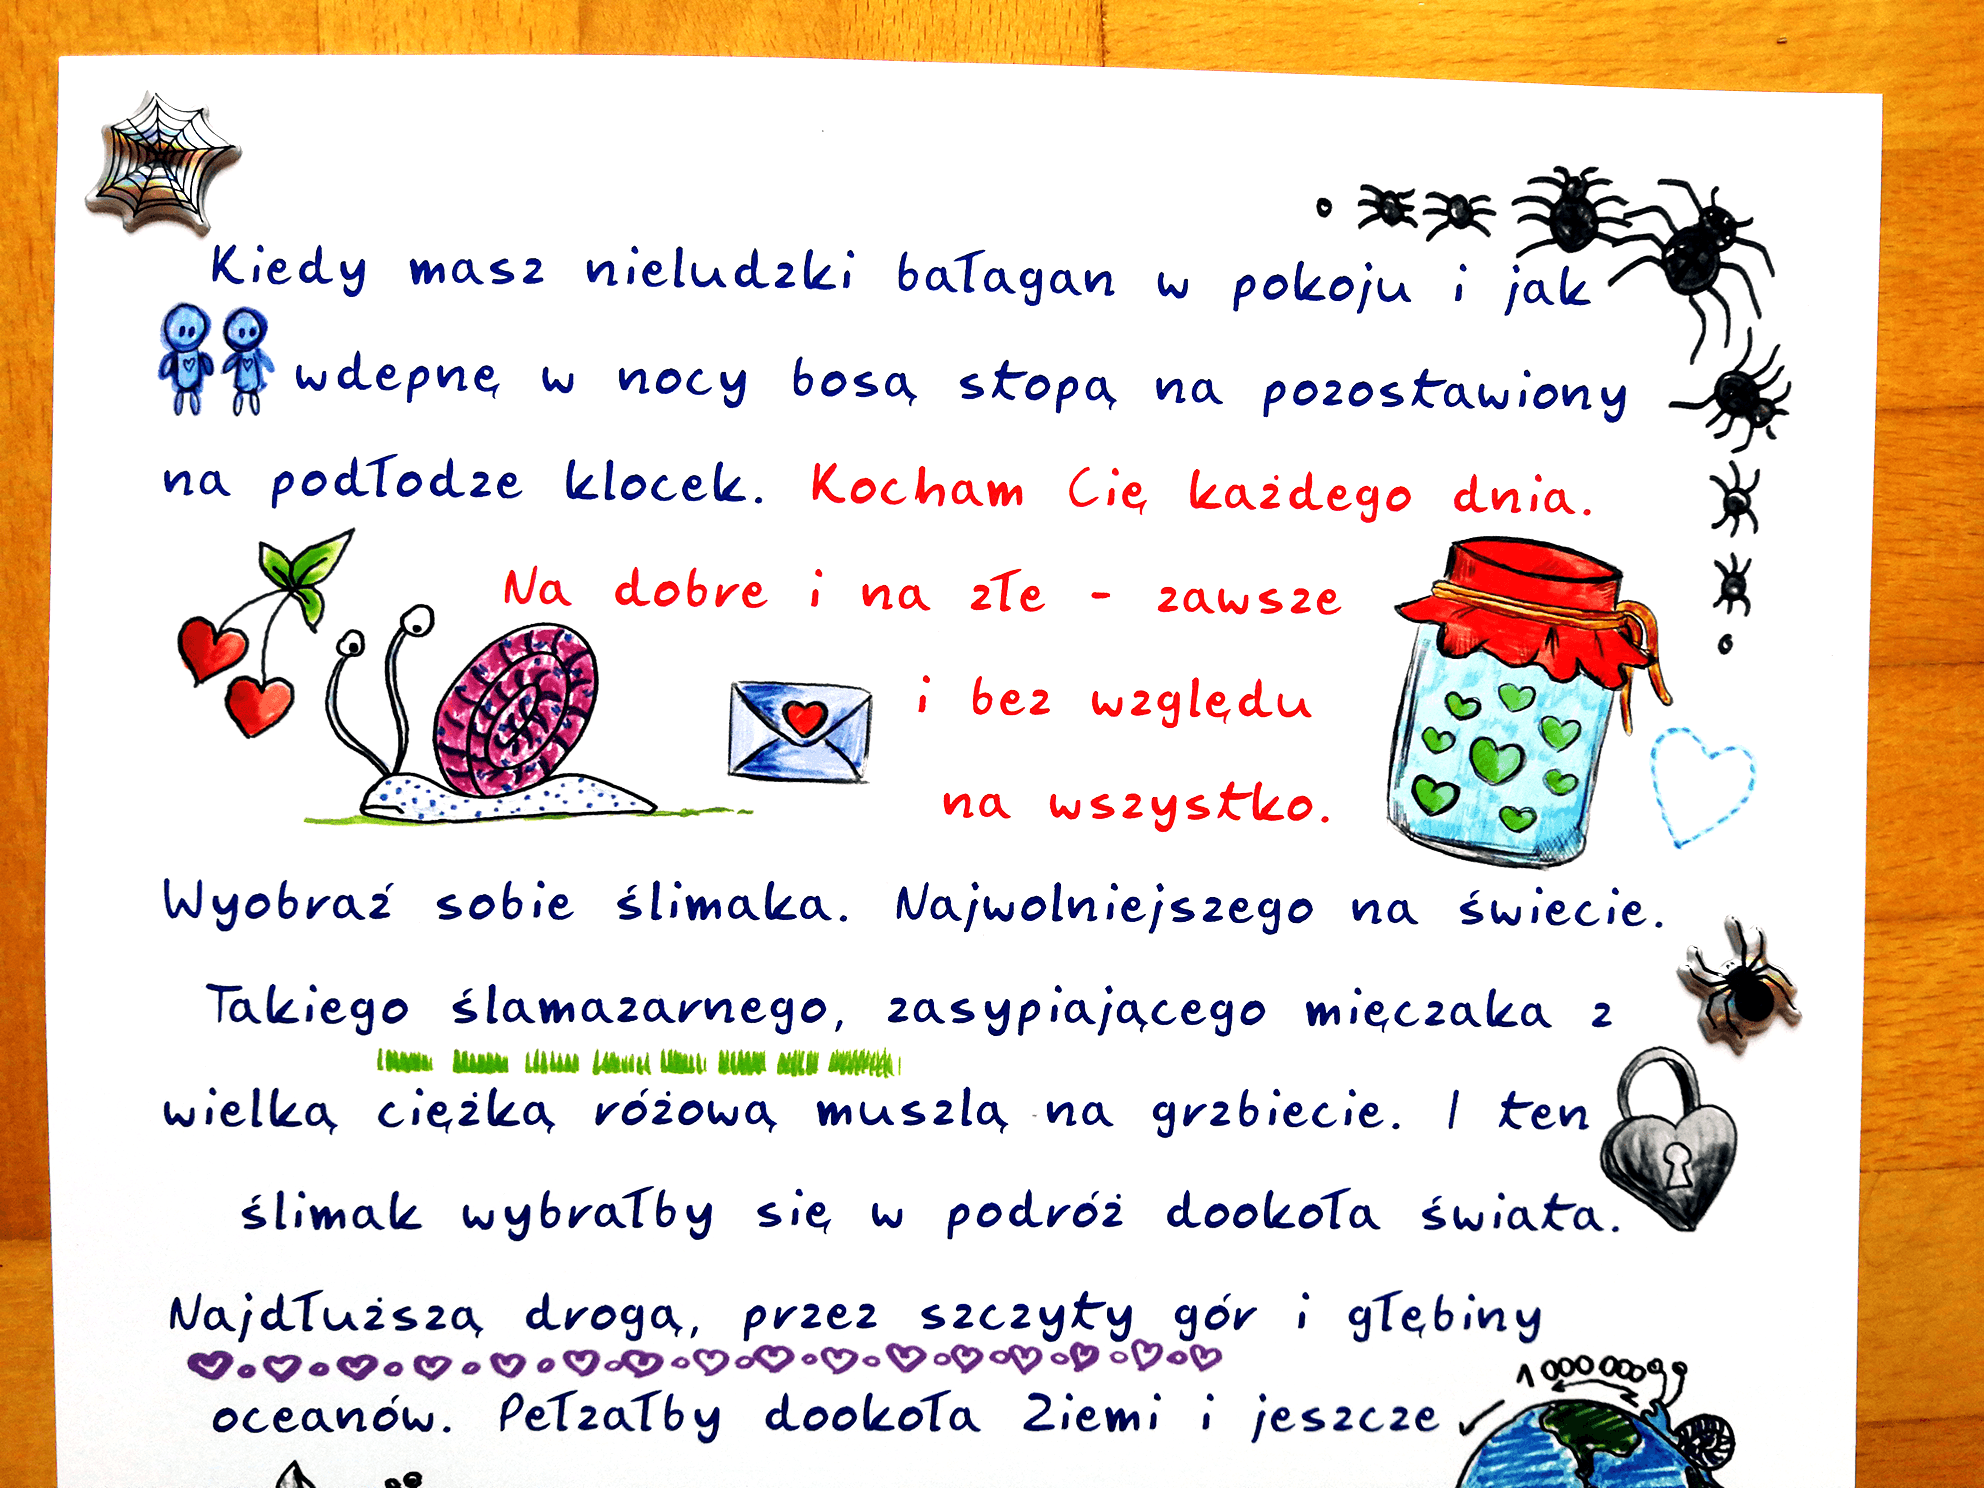 Kiedy masz nieludzki bałagan w pokoju i jak
wdepnę w nocy bosą stopą na pozostawiony
na podłodze klocek. Kocham Cię każdego dnia.
Na dobre i na złe - zawsze
i bez względu
na wszystko.
Wyobraź sobie ślimaka. Najwolniejszego na świecie.
Takiego ślamazarnego, zasypiającego mięczaka z
wielką ciężką różową muszlą na grzbiecie. I ten
ślimak wybrałby się w podróż dookoła świata.
Najdłuższą drogą, przez szczyty gór i głębiny
oceanów. Pełzałby dookoła Ziemi i jeszcze